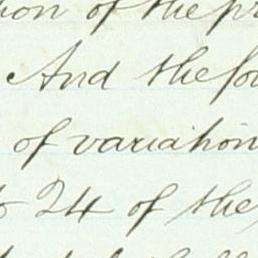 of the
And the
of variation
24 of the